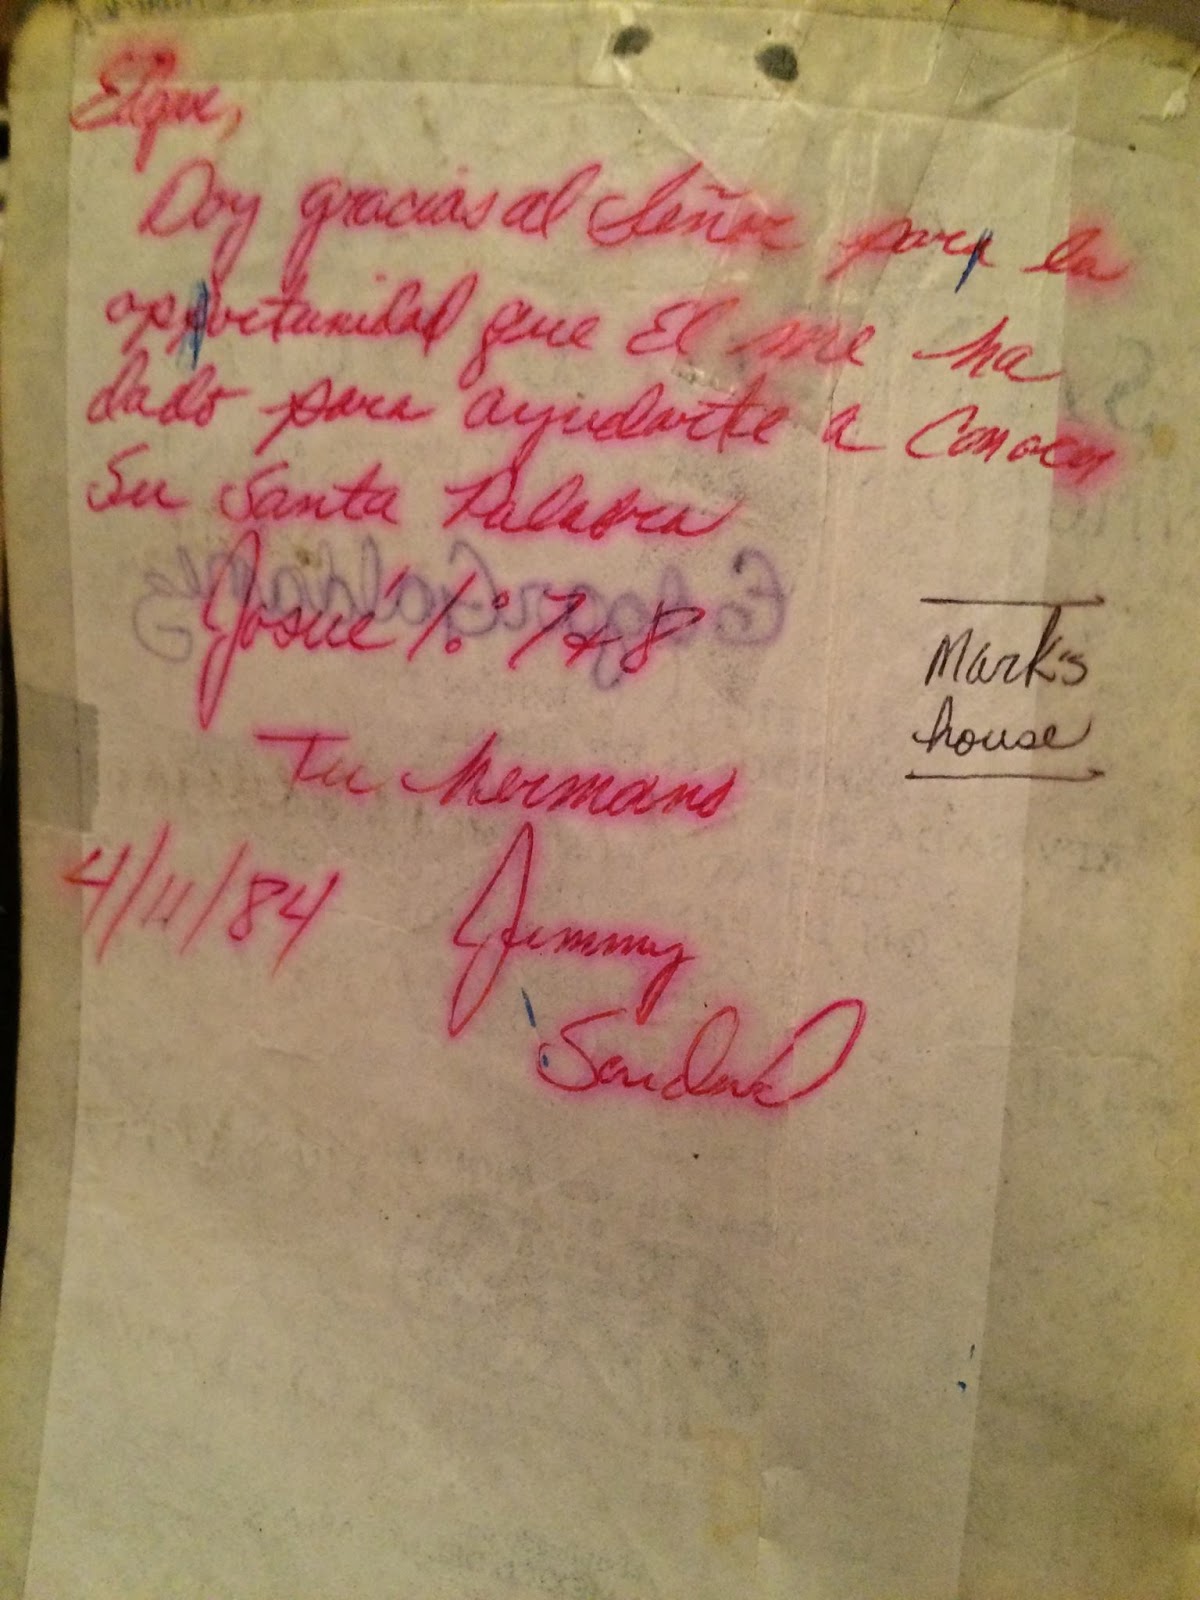 Doy gracias al Señor por la
opportunidad que El me ha
dado para ayudarte a conocer
Su Santa Palabra
Josué 1:7+8
Tu hermano
4/11/84 Jimmy
Mark's
house